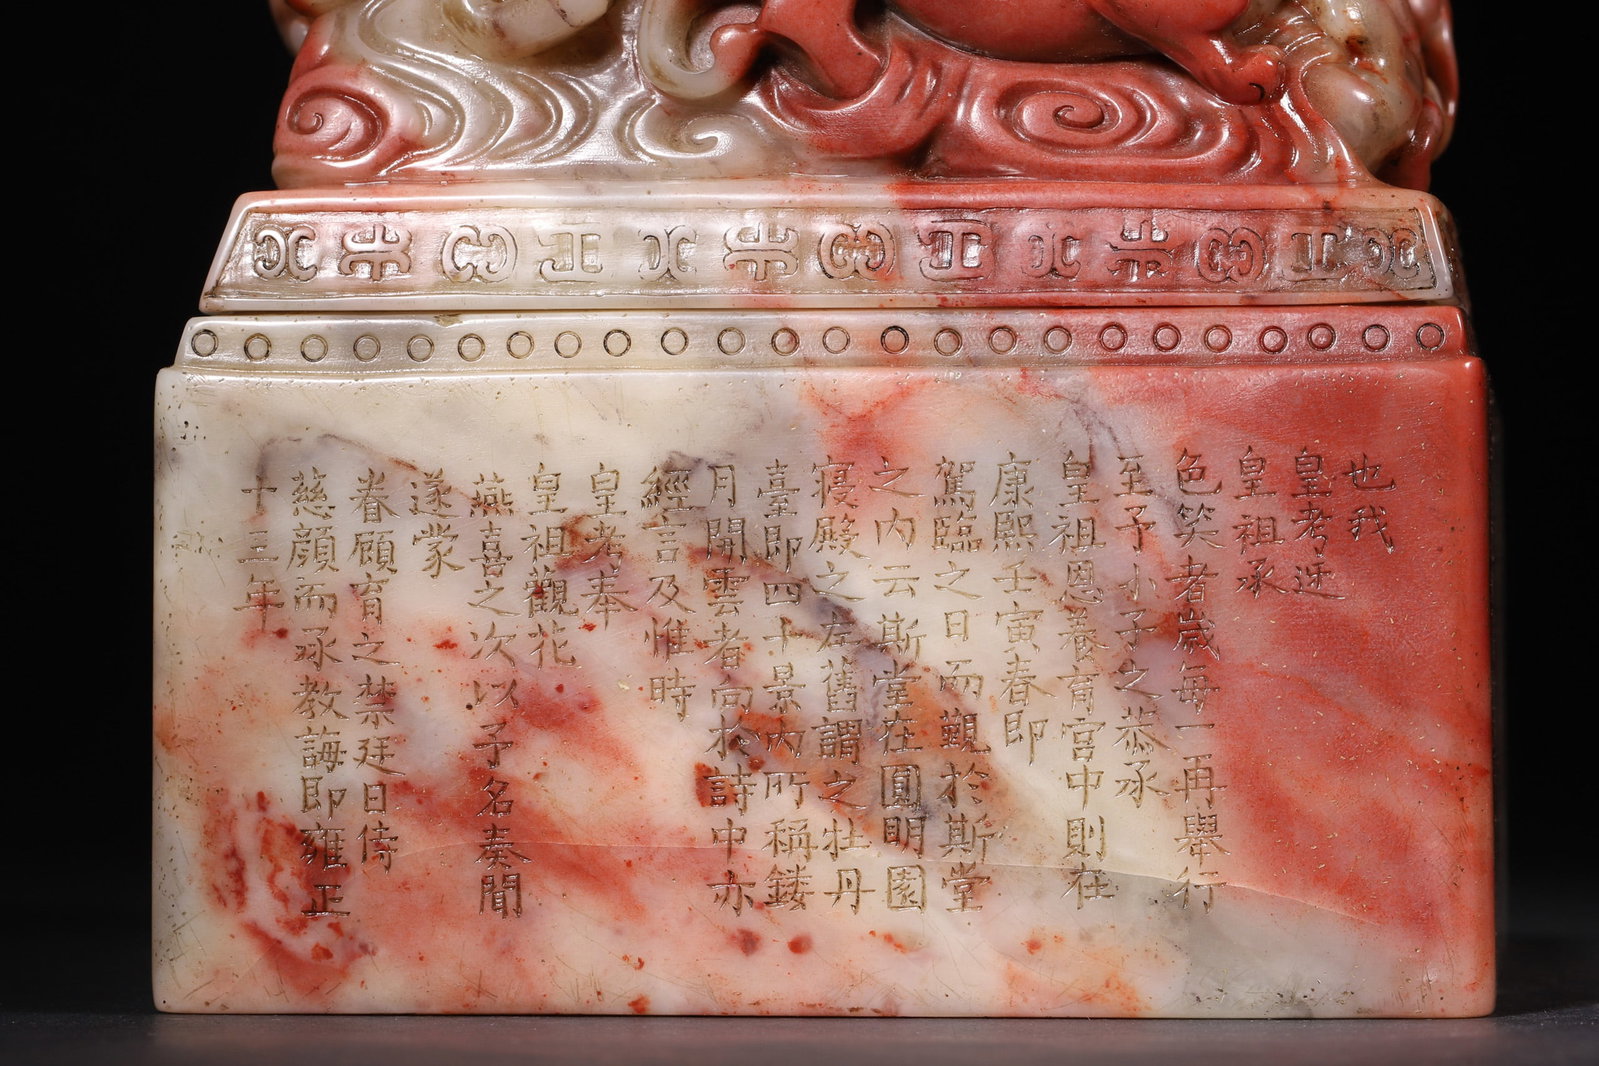 也我
皇考迓
皇祖承
色笑者歲每一再舉行
至予小子之恭承
皇祖恩養育宮中則在
康熙壬寅春即
駕臨之日而覲於斯堂
之內云斯堂在圓明園
寢殿之左舊謂之牡丹
臺即四十景內所稱鏤
月開雲者向於詩中亦
經言及惟時
皇考奉
皇祖觀花
燕喜之次以予名奏聞
遂蒙
眷顧育之禁廷日侍
慈顔而承教誨即雍正
十三年